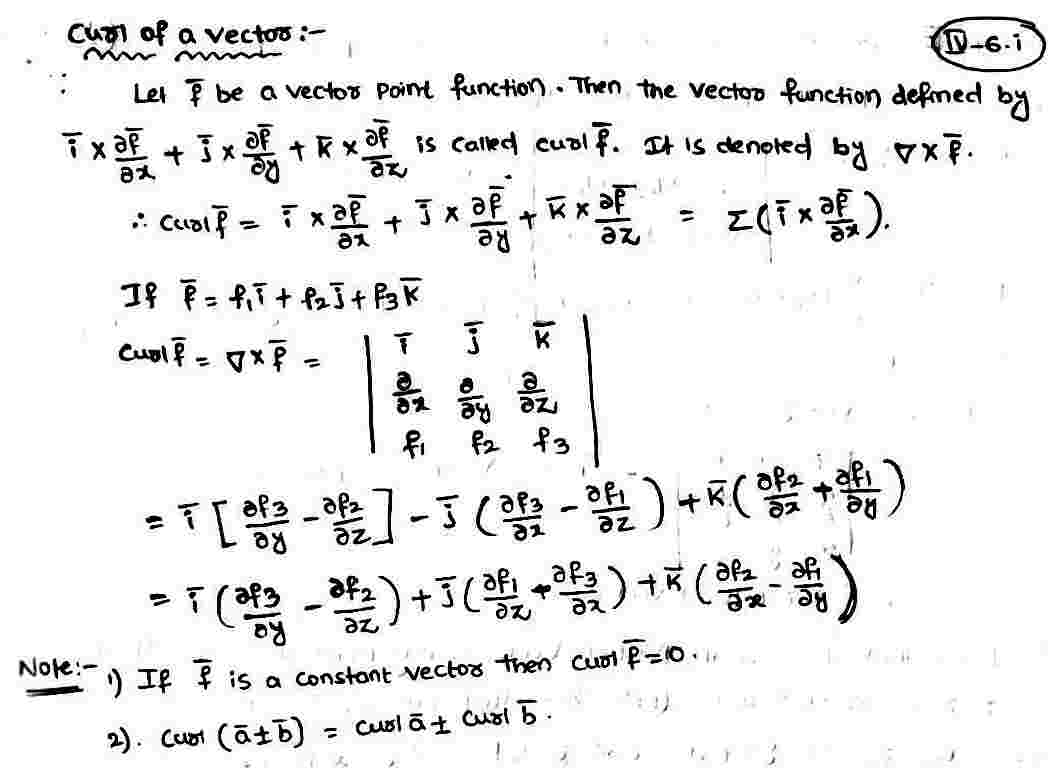 Curl of a vector :-
IV-6.i
Let f̄ be a vector point function. Then the vector function defined by
ī × ∂f̄/∂x + j̄ × ∂f̄/∂y + k̄ × ∂f̄/∂z is called curl f̄. It is denoted by ∇ × f̄.
∴ curl f̄ = ī × ∂f̄/∂x + j̄ × ∂f̄/∂y + k̄ × ∂f̄/∂z = Σ(ī × ∂f̄/∂x).
If f̄ = f₁ī + f₂j̄ + f₃k̄
curl f̄ = ∇ × f̄ = | ī j̄ k̄ |
| ∂/∂x ∂/∂y ∂/∂z |
| f₁ f₂ f₃ |
= ī [∂f₃/∂y - ∂f₂/∂z] - j̄ (∂f₃/∂x - ∂f₁/∂z) + k̄ (∂f₂/∂x + ∂f₁/∂y)
= ī (∂f₃/∂y - ∂f₂/∂z) + j̄ (∂f₁/∂z + ∂f₃/∂x) + k̄ (∂f₂/∂x - ∂f₁/∂y)
Note:- 1) If f̄ is a constant vector then curl f̄ = 0.
2). curl (ā ± b̄) = curl ā ± curl b̄.